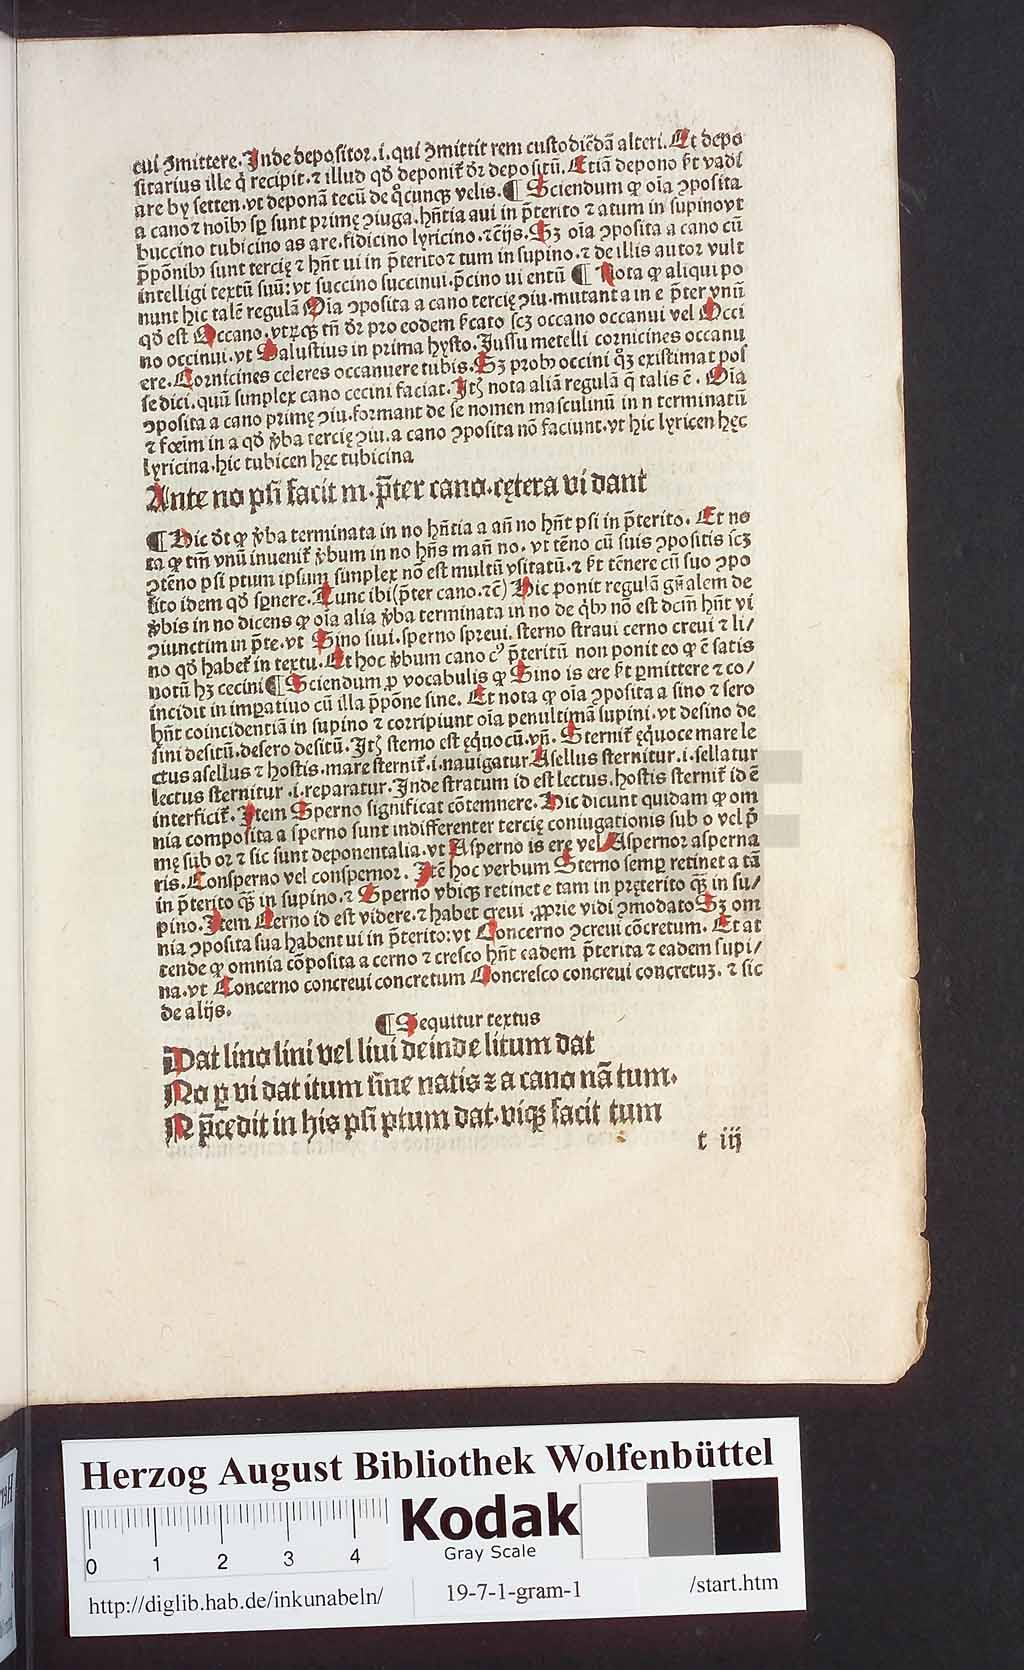 cui ꝯmittere. Inde depositor .i. qui ꝯmittit rem custodiēdā alteri. Et depo
sitarius ille q̇ recipit. ⁊ illud qđ deponit̃ dr̃ depositū. Etiā depono ẜt vadi
are by setten. vt deponā tecū de qͦcunqꝫ velis. ¶ Sciendum ꝙ oīa ꝯposita
a cano ⁊ noībꝫ sꝑ sunt primę ꝯiuga. hn̄tia aui in p̄terito ⁊ atum in supino vt
buccino tubicino as are. fidicino lyricino. ⁊c̄ijs. Sꝫ oīa ꝯposita a cano cū
p̄pōnibꝫ sunt tercię ⁊ hn̄t ui in p̄terito ⁊ tum in supino. ⁊ de illis autor vult
intelligi textū suū: vt succino succinui. p̄cino ui entū ¶ Nota ꝙ aliqui po
nunt hic talē regulā Oīa ꝯposita a cano tercię ꝯiu. mutant a in e p̄ter vnū
qđ est Occano. vtrūqꝫ tn̄ dr̃ pro eodem ẜcato scꝫ occano occanui vel Occi
no occinui. vt Salustius in prima hysto. Jussu metelli cornicines occanu
ere. Cornicines celeres occanuere tubis. Sꝫ probꝫ occini qꝫ existimat pos
se dici. quū simplex cano cecini faciat. Itꝫ nota aliā regulā q̄ talis ē. Oīa
ꝯposita a cano primę ꝯiu. formant de se nomen masculinū in n terminatū
⁊ fœīm in a qđ v̄ba tercię ꝯiu. a cano ꝯposita nō faciunt. vt hic lyricen hęc
lyricina. hic tubicen hęc tubicina
Ante no psi facit m. p̄ter cano. cętera vi dant
¶ Hic dr̃ ꝙ v̄ba terminata in no hn̄tia a an̄ no hn̄t psi in p̄terito. Et no
ta ꝙ tm̄ vnū inuenit̃ v̄bum in no hn̄s m an̄ no. vt tēno cū suis ꝯpositis scꝫ
ꝯtēno psi ptum ipsum simplex nō est multū vsitatū. ⁊ ẜt tēnere cū suo ꝯpo
sito idem qđ sꝑnere. Tunc ibi (p̄ter cano. ⁊c̄) Hic ponit regulā gn̄alem de
v̄bis in no dicens ꝙ oīa alia v̄ba terminata in no de qͥbꝫ nō est dcm̄ hn̄t vi
ꝯiunctim in p̄te. vt Sino siui. sperno spreui. sterno straui cerno creui ⁊ li/
no qđ habet̃ in textu. Et hoc v̄bum cano cꝰ p̄teritū non ponit eo ꝙ ē satis
notū hꝫ cecini ¶ Sciendum ꝓ vocabulis ꝙ Sino is ere ẜt ꝑmittere ⁊ co/
incidit in imꝑatiuo cū illa p̄pōne sine. Et nota ꝙ oīa ꝯposita a sino ⁊ sero
hn̄t coincidentiā in supino ⁊ corripiunt oīa penultimā supini. vt desino de
sini desitū. desero desitū. Itꝫ sterno est ęq̇uocū. vn̄. Sternit̃ ęq̇uoce mare le
ctus asellus ⁊ hostis. mare sternit̃ .i. nauigatur Asellus sternitur .i. sellatur
lectus sternitur .i. reparatur. Inde stratum id est lectus. hostis sternit̃ id ē
interficit̃. Item Sperno significat cōtemnere. Hic dicunt quidam ꝙ om
nia composita a sperno sunt indifferenter tercię coniugationis sub o vel p̄
mę sub or ⁊ sic sunt deponentalia. vt Asperno is ere vel Aspernor asperna
ris. Consperno vel conspernor. Itē hoc verbum Sterno semꝑ retinet a tā
in p̄terito qꝫ̄ in supino. ⁊ Sperno vbiqꝫ retinet e tam in pręterito qꝫ̄ in su/
pino. Item Cerno id est videre. ⁊ habet creui. ꝓprie vidi ꝯmodato Sꝫ om
nia ꝯposita sua habent ui in p̄terito: vt Concerno ꝯcreui cōcretum. Et at
tende ꝙ omnia cōposita a cerno ⁊ cresco hn̄t eadem p̄terita ⁊ eadem supi/
na. vt Concerno concreui concretum Concresco concreui concretuꝫ. ⁊ sic
de alijs.
¶ Sequitur textus
Dat lino lini vel liui deinde litum dat
No ꝑ vi dat itum sine natis ⁊ a cano nā tum.
N p̄cedit in his psi ptum dat. viqꝫ facit tum
t iij
Herzog August Bibliothek Wolfenbüttel
Kodak
Gray Scale
0 1 2 3 4
http://diglib.hab.de/inkunabeln/ 19-7-1-gram-1 /start.htm